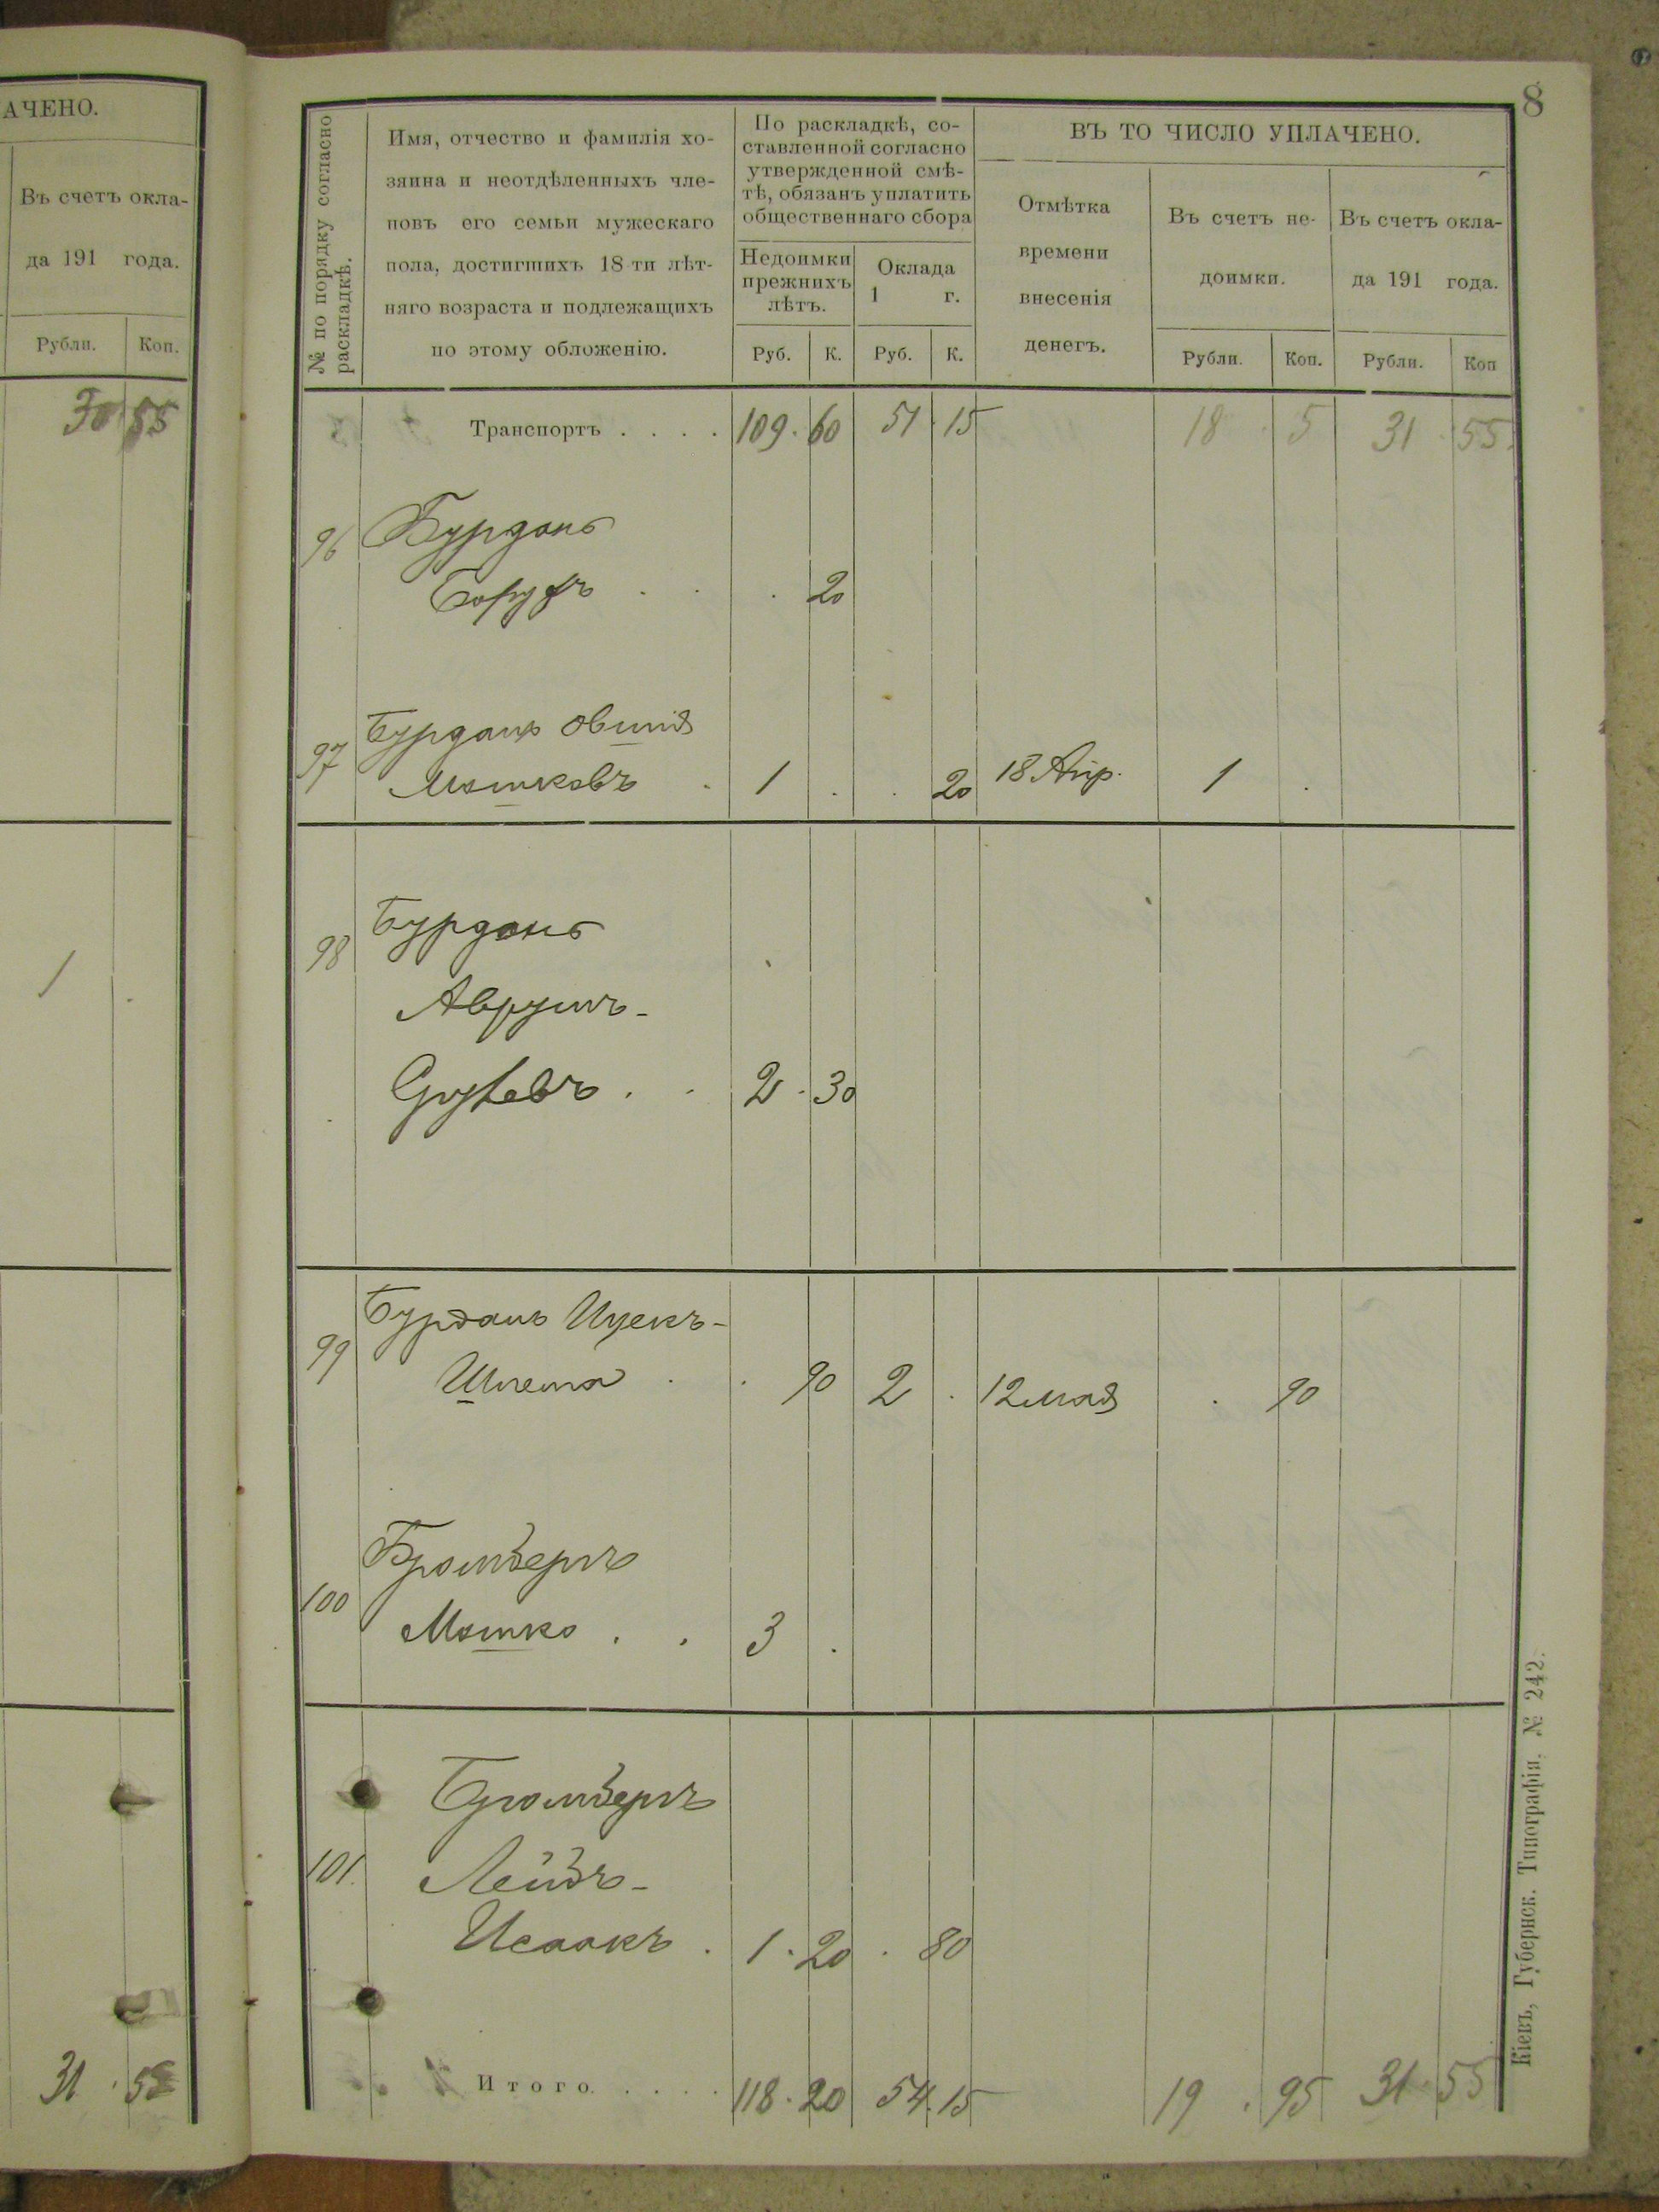 АЧЕНО.
Въ счетъ окла-
да 191 года.
Рубли. Коп.
30 55
1 .
31 . 55
8
№ по порядку согласно
раскладкѣ.
Имя, отчество и фамилія хо-
зяина и неотдѣленныхъ чле-
новъ его семьи мужескаго
пола, достигшихъ 18-ти лѣт-
няго возраста и подлежащихъ
по этому обложенію.
По раскладкѣ, со-
ставленной согласно
утвержденной смѣ-
тѣ, обязанъ уплатить
общественнаго сбора
Недоимки
прежнихъ
лѣтъ.
Оклада
1 г.
Руб. К. Руб. К.
ВЪ ТО ЧИСЛО УПЛАЧЕНО.
Отмѣтка
времени
внесенія
денегъ.
Въ счетъ не-
доимки.
Рубли. Коп.
Въ счетъ окла-
да 191 года.
Рубли. Коп
Транспортъ . . . . 109 . 60 51 . 15 18 . 5 31 . 55.
96 Бурданъ
Борухъ . . . 20
97 Бурданъ Овшія
Мошковъ . 1 . . 20 18 Апр. 1 .
98 Бурданъ
Аврумъ-
Срулевъ . . 2 . 30
99 Бурданъ Ицекъ-
Шлема . . 90 2 . 12 мая . 90
100 Бромбергъ
Мошко . . 3 .
Бромбергъ
101. Лейбъ-
Исаакъ . 1 . 20 . 80
Итого. . . . . 118 . 20 54 . 15 19 . 95 31 55
Кіевъ, Губернск. Типографія. № 242.